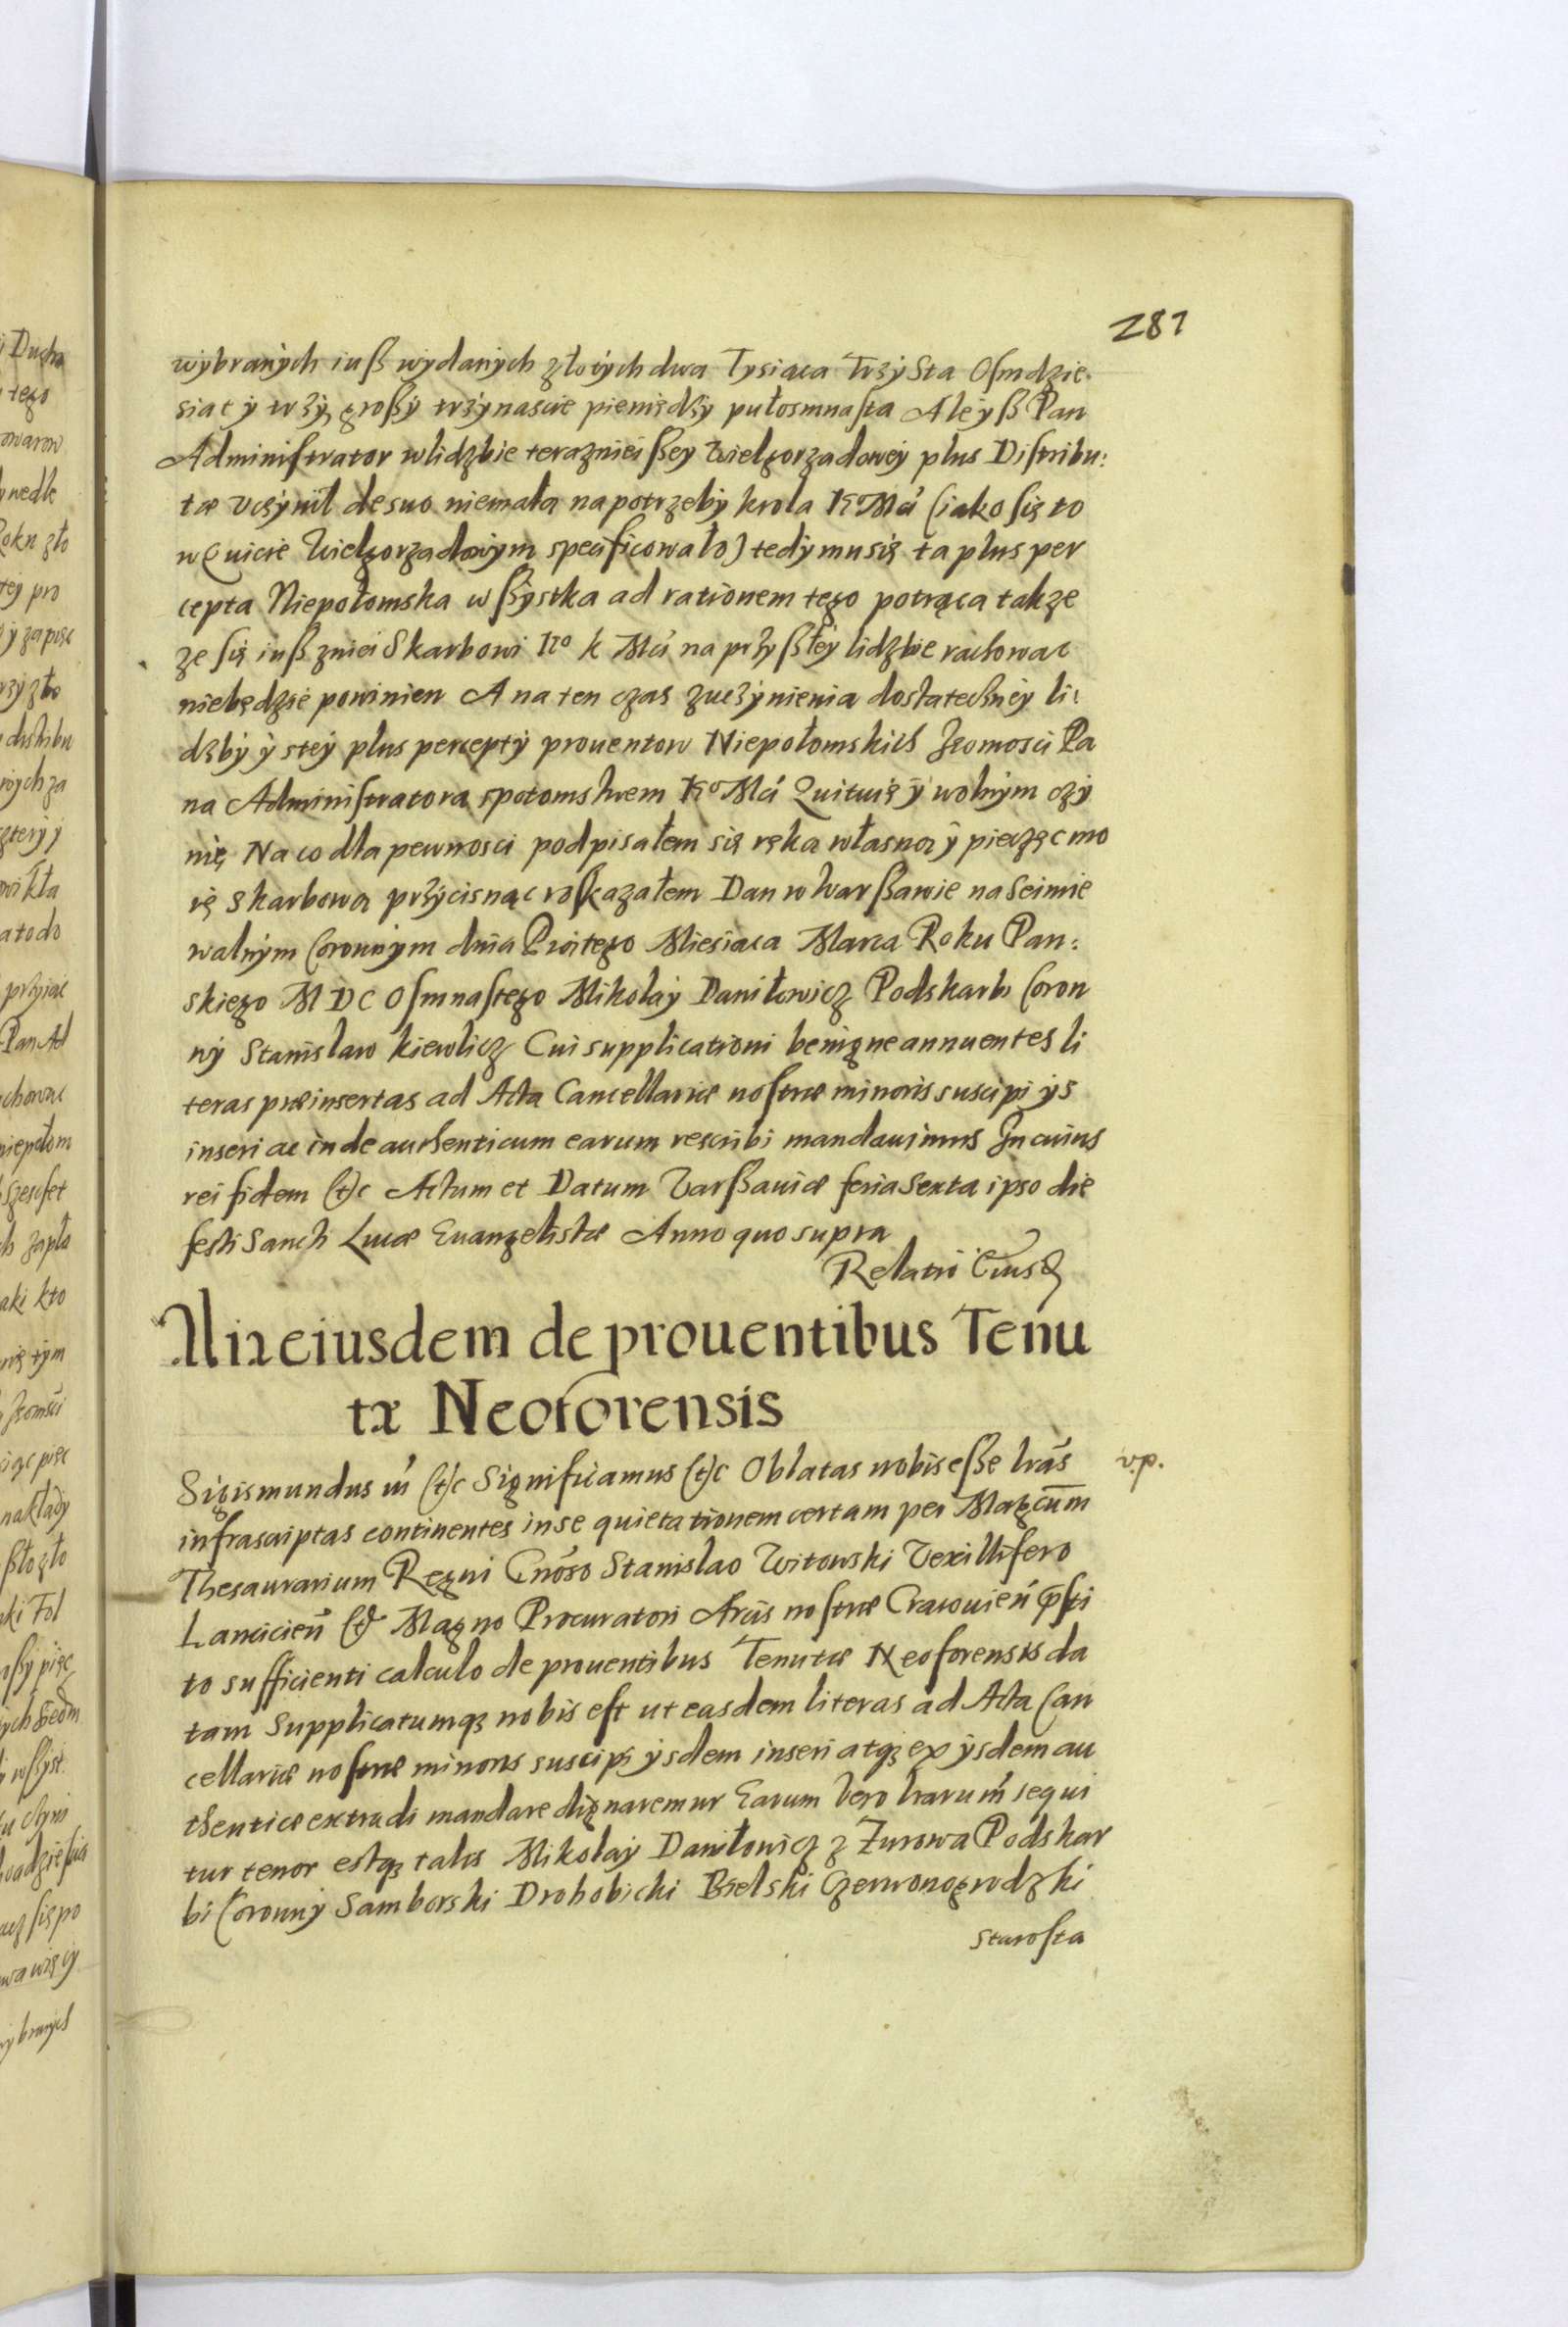 281
wybranych iuß wydanych złotych dwa Tysiąca Trzÿ Sta Osmdzie
siąt ÿ trzÿ großÿ trzÿnascie pieniędzÿ pułosmnasta Aleÿß Pan
Administrator wlidzbie teraznieißey Wielgorządoweÿ plus Distribu:
tæ vczÿnił de suo niemałą na potrzebÿ krola Ko Mci (iako się to
w Quicie Wielgorządowÿm specificowało) tedÿ musię ta plus per
cepta Niepołomska wßÿstka ad rationem tego potrąca takze
ze się iuß zniei Skarbowi Ko k Mci na przÿßłeÿ lidzbie rachowac
niebędzie powinien A na ten czas zuczÿnienia dostateczneÿ li
dzbÿ ÿ steÿ plus perceptÿ prouentow Niepołomskich Jeomosci Pa
na Administratora spotomstwem Ko Mci Quituię ÿ wolnÿm czÿ
nię Na co dla pewnosci podpisałem się ręką własną ÿ pieczęc mo
ię skarbową przÿcisnąc roskazałem Dan w Warßawie na Seimie
walnÿm Coronnÿm dnia Piątego Miesiąca Marca Roku Pan:
skiego M DC Osmnastego Mikołaÿ Daniłowicz Podskarbi Coron
nÿ Stanisław kiewlicz Cui supplicationi benigne annuentes li
teras præinsertas ad Acta Cancellariæ nostræ minoris suscipi ÿs
inseri ac inde authenticum earum rescribi mandauimus In cuius
rei fidem (t)c Actum et Datum Varßauiæ feria Sexta ipso die
festi Sancti Lucæ Euangelistæ Anno quo supra
Relatio Eiusd
Alia eiusdem de prouentibus Tenu
tæ Neoforensis
Sigismundus III (t)c Significamus (t)c Oblatas nobis eße lras
v.p.
infrascriptas continentes in se quietationem certam per Magcum
Thesaurarium Regni Gnoso Stanislao Witowski Vexillifero
Lancicien (t) Magno Procuratori Arcis nostræ Cracouien psti
to sufficienti calculo de prouentibus Tenutæ Neoforensis da
tam Supplicatumqz nobis est ut easdem literas ad Acta Can
cellariæ nostræ minoris suscipi ÿsdem inseri atqz ex ÿsdem au
thentice extradi mandare dignaremur Earum vero lrarum sequi
tur tenor estqz talis Mikołaÿ Daniłowicz z Zurowa Podskar
bi Coronnÿ Samborski Drohobicki Bielski Czerwonogrodzki
Starosta